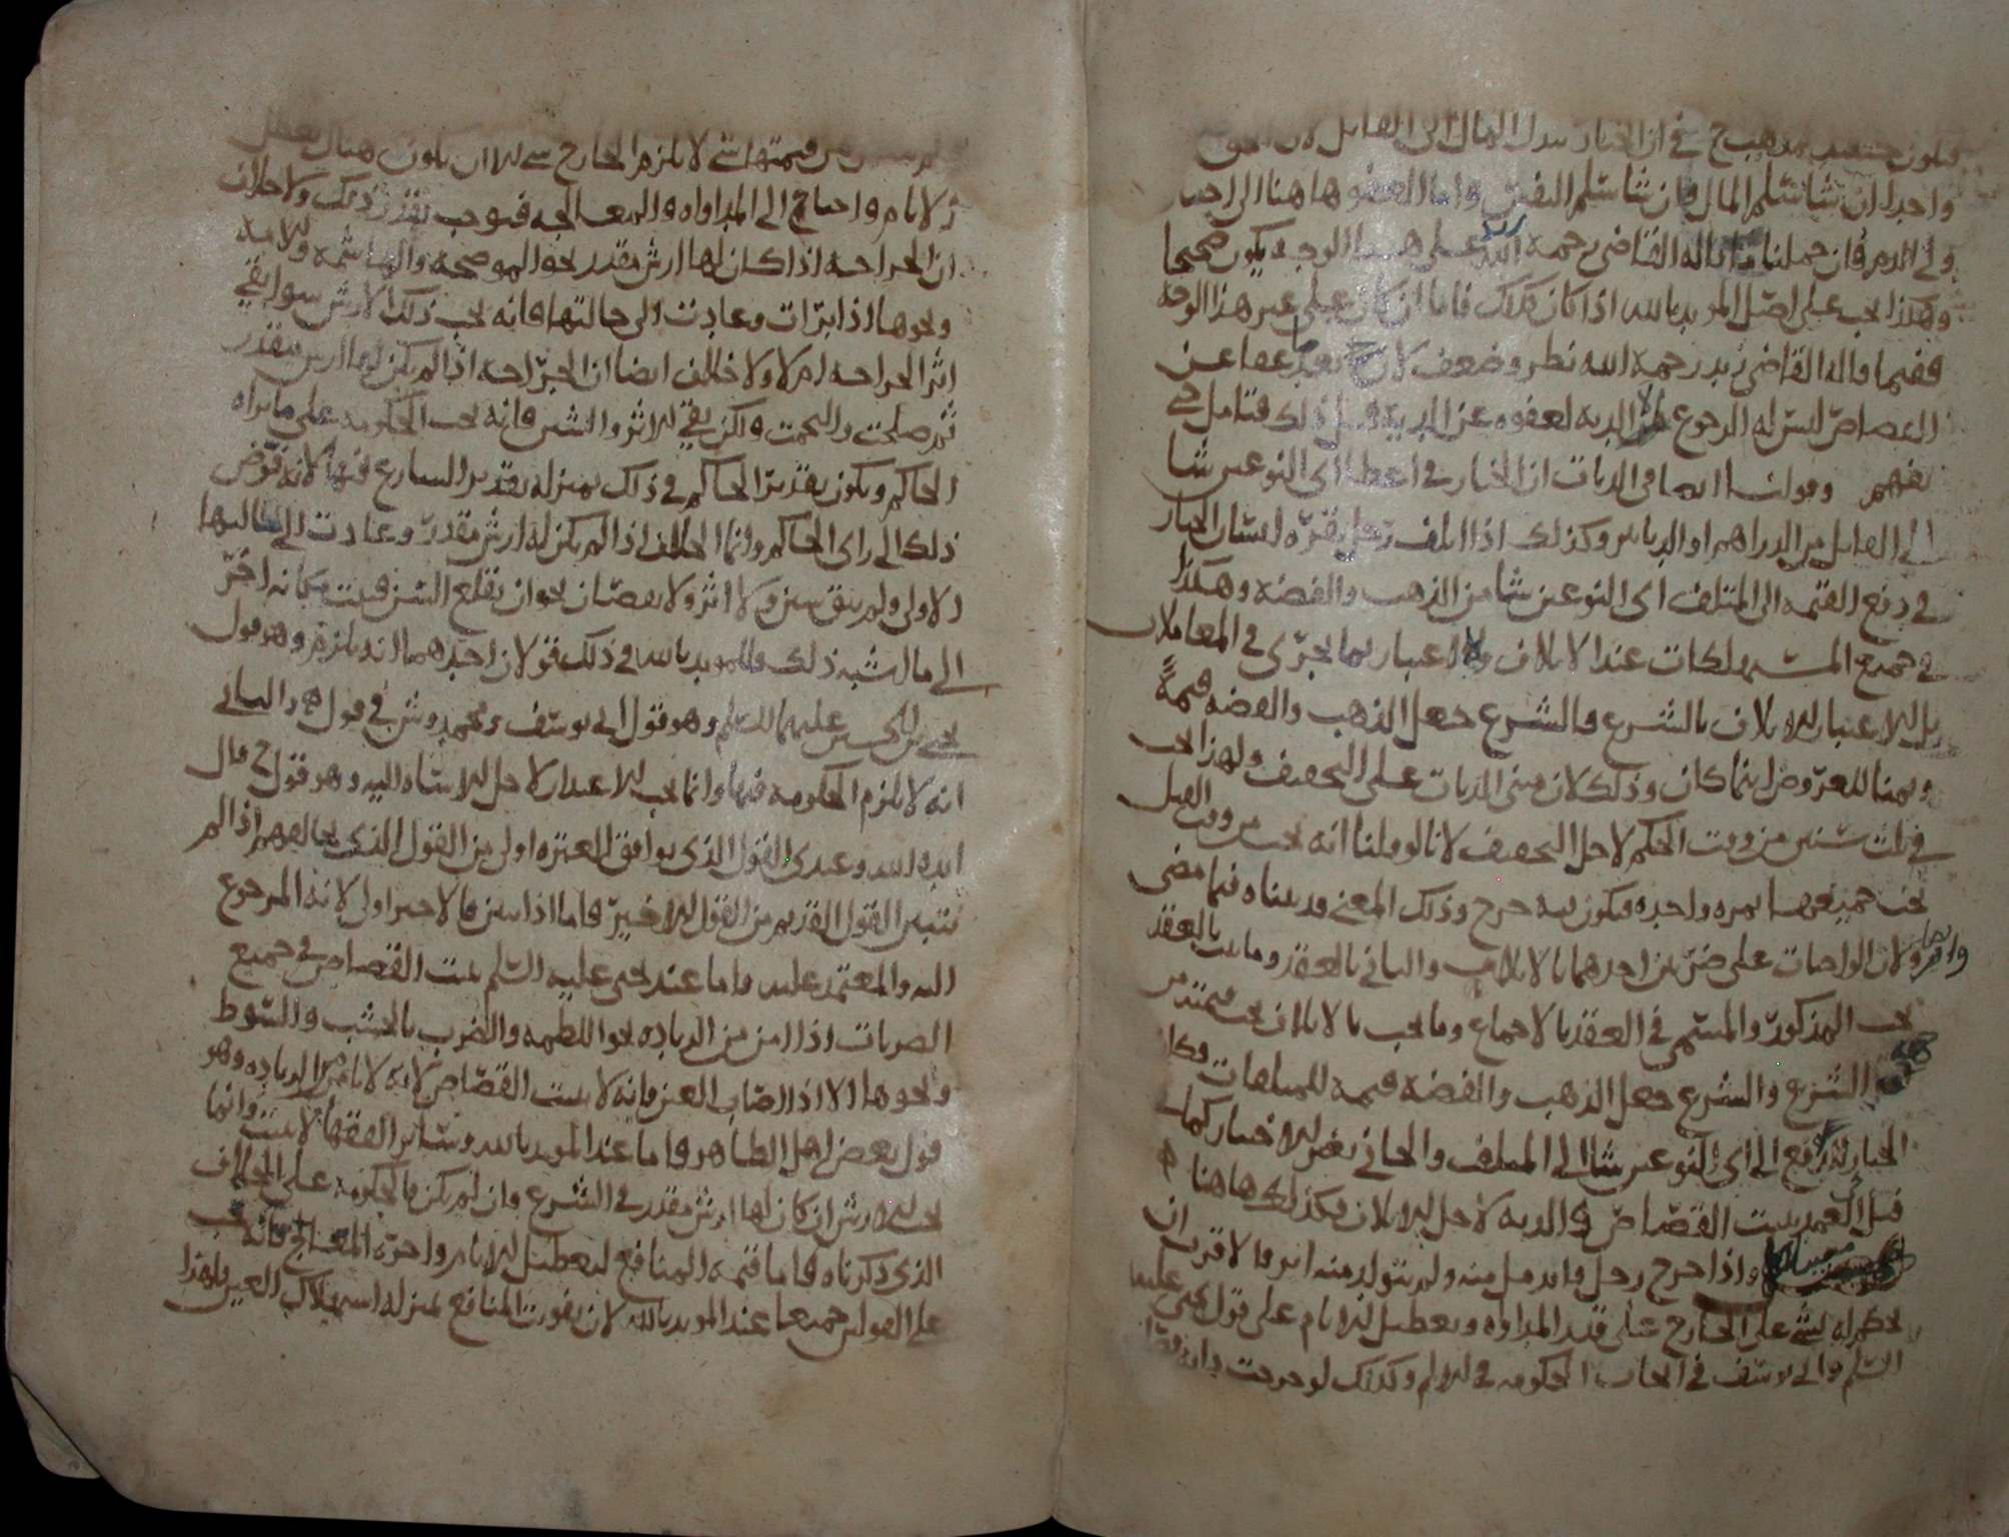 فيكون حينئذ مذهب ح في ان الخيار ببذل المال الى القاتل لان الحق
واحد ان شا سلم المال وان شا سلم النفس واما العفو هاهنا الى اختيار
ولي الدم فان حملنا ما قاله القاضي زيد رحمه الله على هذا الوجه يكون صحيحا
وهكذا يجب على اصل المويد بالله اذا كان كذلك فاما ان كان على غير هذا الوجه
ففيما قاله القاضي زيد رحمه الله نظر وضعف لان ح بعد ما عفا عن
القصاص ليس له الرجوع الى الدية لعفوه عن الدية قبل ذلك فتامل حتى
تفهم وقولنا ايضا في الديات ان الخيار في اعطا اي النوعين شا
الى القاتل من الدراهم او الدنانير وكذلك اذا اتلف رجل بقرة انسان الخيار
في دفع القيمة الى المتلف اي النوعين شا من الذهب والفضة وهكذا
في جميع المستهلكات عند الاتلاف ولا اعتبار بما يجري في المعاملات
بل الاعتبار للاتلاف بالشرع والشرع جعل الذهب والفضة قيمة
وثمنا للعروض اينما كان وذلك لان مبنى الديات على التخفيف ولهذا يجب
في ثلث سنين من وقت الحكم لاجل التخفيف لانا لو قلنا انه يجب من وقت القتل
يجب جميعها بمرة واحدة فيكون فيه حرج وذلك المعنى قد بيناه فيما مضى
ولان الواجبات على ضربين احدهما بالاتلاف والثاني بالعقد وما يثبت بالعقد
يجب المذكور والمسمى في العقد بالاجماع وما يجب بالاتلاف يجب قيمته من
جهة الشرع والشرع جعل الذهب والفضة قيمة للمتلفات وكان
الخيار لدفع اي النوعين شا الى المتلف والجاني بغير الاختيار كما
قبل العمد يثبت القصاص والدية لاجل الاتلاف فكذلك هاهنا
واذا جرح رجل فاندمل منه ولم يتولد منه اثر فالاقرب ان
يحكم له بشي على الجارح على قدر المداواة وتعطيل الايام على قول يحيى عليه
السلم وابي يوسف في ايجاب الحكومة في الالم وكذلك لو جرحت دابة
من قيمتها شي لا يلزم الجارح شي الا ان يكون هناك تعطل
الايام واحتاج الى المداواة والمعالجة فيوجب بقدر ذلك ولا خلاف
ان الجراحة اذا كان لها ارش مقدر نحو الموضحة والهاشمة والامة
ونحوها اذا برات وعادت الى حالتها فانه يجب ذلك الارش سوا بقي
اثر الجراحة ام لا ولا خلاف ايضا ان الجراحة اذا لم يكن لها ارش مقدر
ثم صلحت والتحمت ولكن بقي الاثر والشين فانه يجب الحكومة على ما يراه
الحاكم ويكون تقدير الحاكم في ذلك بمنزلة تقدير الشارع فيها لانه فوض
ذلك الى راي الحاكم وانما الخلاف اذا لم يكن له ارش مقدر وعادت الى حالتها
الاولى ولم يبق شين ولا اثر ولا نقصان نحو ان يقلع السن فنبت مكانه اخر
الى ما اشبه ذلك وللمويد بالله في ذلك قولان احدهما انه يلزم وهو قول
يحيى بن الحسين عليهما السلم وهو قول ابي يوسف ومحمد وش في قول له والثاني
انه لا يلزم الحكومة فيها وانما يجب الاعتذار لاجل الاساة اليه وهو قول ح قال
ايده الله وعندي القول الذي يوافق العترة اولى من القول الذي يخالفهم اذا لم
يتبين القول القديم من القول الاخير فاما اذا تبين فالاخير اولى لانه المرجوع
اليه والمعتمد عليه واما عند يحيى عليه السلم يثبت القصاص في جميع
الضربات اذا امن من الزيادة نحو اللطمة والضرب بالخشب والسوط
ونحوها الا اذا اصاب العين فانه لا يثبت القصاص لانه لا يامن من الزيادة وهو
قول بعض اهل الظاهر واما عند المويد بالله وساير الفقها لا يثبت وانما
يجب الارش ان كان لها ارش مقدر في الشرع وان لم يكن فالحكومة على الخلاف
الذي ذكرناه فاما قيمة المنافع لتعطيل الايام واجرة المعالج فانه يجب
على القولين جميعا عند المويد بالله لان تفويت المنافع بمنزلة استهلاك العين ولهذا